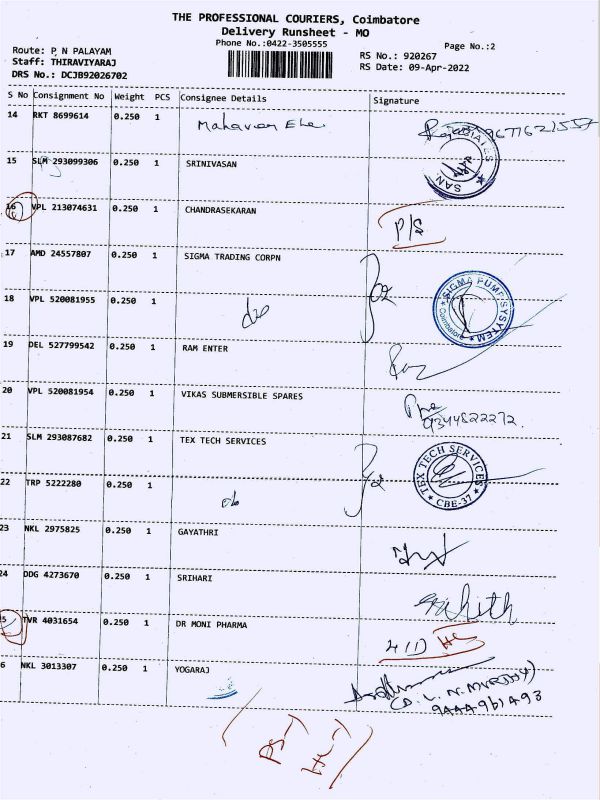 THE PROFESSIONAL COURIERS, Coimbatore
Delivery Runsheet - MO
Phone No.:0422-3505555
Page No.:2
Route: P N PALAYAM
Staff: THIRAVIYARAJ
DRS No.: DCJB92026702
RS No.: 920267
RS Date: 09-Apr-2022
S No Consignment No Weight PCS Consignee Details Signature
14 RKT 8699614 0.250 1
15 SLM 293099306 0.250 1 SRINIVASAN
16 VPL 213074631 0.250 1 CHANDRASEKARAN P/S
17 AMD 24557807 0.250 1 SIGMA TRADING CORPN
SIGMA PUMP SYSYTEM
Coimbatore
18 VPL 520081955 0.250 1 do
19 DEL 527799542 0.250 1 RAM ENTER
20 VPL 520081954 0.250 1 VIKAS SUBMERSIBLE SPARES
9344822272
21 SLM 293087682 0.250 1 TEX TECH SERVICES
TEX TECH SERVICES
CBE-37
22 TRP 5222280 0.250 1 do
23 NKL 2975825 0.250 1 GAYATHRI
24 DDG 4273670 0.250 1 SRIHARI
5 TVR 4031654 0.250 1 DR MONI PHARMA
6 NKL 3013307 0.250 1 YOGARAJ